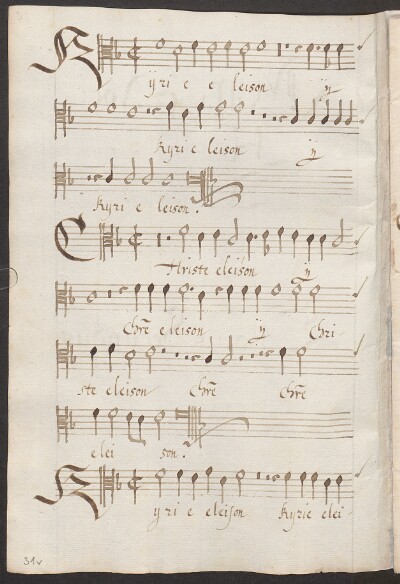 Kyri e e leison ij
Kyri e leison ij
Kyri e leison.
Christe eleison ij
Chr̄e eleison ij Chri
ste eleison Chr̄e Chr̄e
elei son.
Kyri e eleison Kyrie elei-
31v